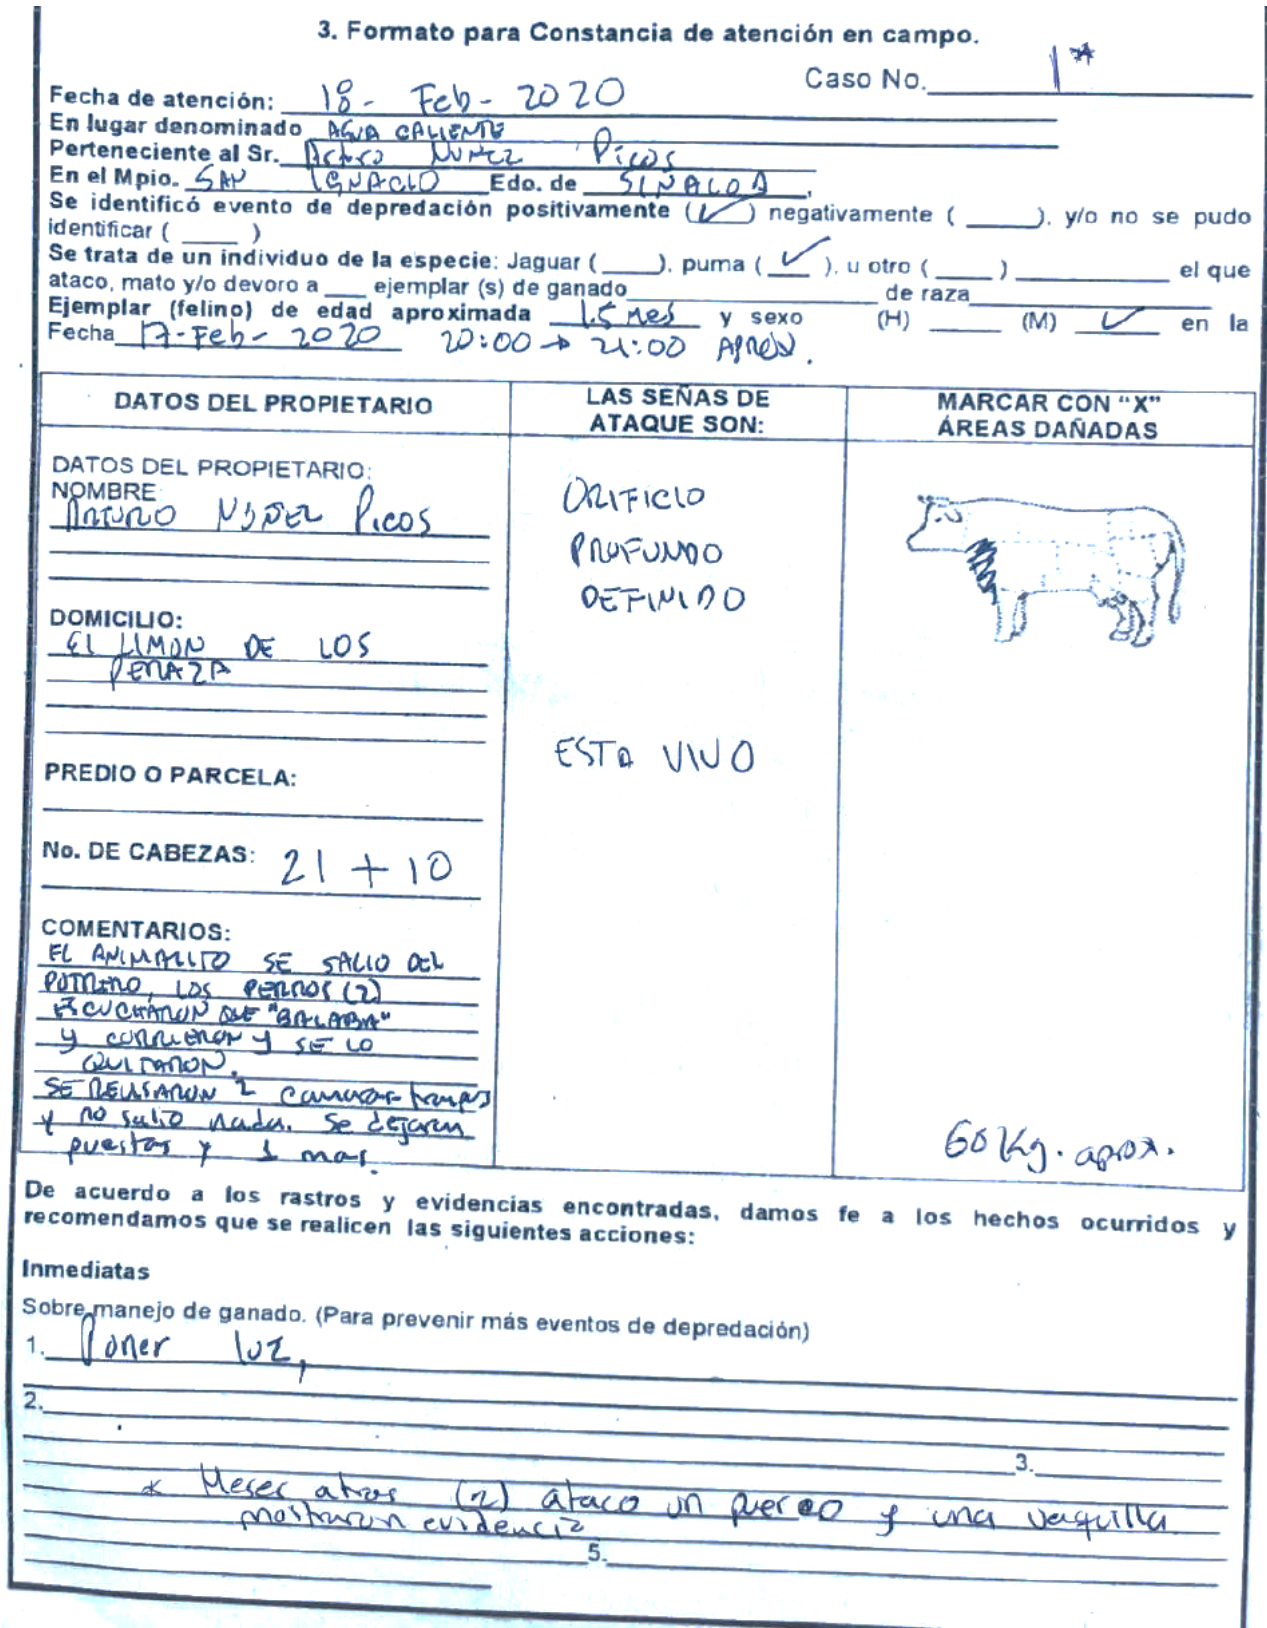 3. Formato para Constancia de atención en campo.
Caso No. 1*
Fecha de atención: 18 - Feb - 2020
En lugar denominado AGUA CALIENTE
Perteneciente al Sr. Arturo NUÑEZ Picos
En el Mpio. SAN IGNACIO Edo. de SINALOA,
Se identificó evento de depredación positivamente (✓) negativamente ( ____ ), y/o no se pudo
identificar ( ____ )
Se trata de un individuo de la especie: Jaguar (____), puma ( ✓ ), u otro ( ____ ) ____________ el que
ataco, mato y/o devoro a ___ ejemplar (s) de ganado____________________ de raza____________________
Ejemplar (felino) de edad aproximada 1.5 mes y sexo (H) ____ (M) ✓ en la
Fecha 17-Feb-2020 20:00 → 21:00 APROX.
DATOS DEL PROPIETARIO
LAS SEÑAS DE
ATAQUE SON:
MARCAR CON “X”
ÁREAS DAÑADAS
DATOS DEL PROPIETARIO:
NOMBRE
ARTURO NUÑEZ PICOS
DOMICILIO:
EL LIMON DE LOS
PERAZA
PREDIO O PARCELA:
No. DE CABEZAS: 21 + 10
COMENTARIOS:
EL ANIMALITO SE SALIO DEL
POTRERO, LOS PERROS (2)
ESCUCHARON QUE "BALABA"
Y CORRIERON Y SE LO
QUITARON.
SE REVISARON 2 camaras-trampas
y no salio nada. Se dejaron
puestas y 1 mas.
ORIFICIO
PROFUNDO
DEFINIDO
ESTA VIVO
60 Kg. aprox.
De acuerdo a los rastros y evidencias encontradas, damos fe a los hechos ocurridos y
recomendamos que se realicen las siguientes acciones:
Inmediatas
Sobre manejo de ganado. (Para prevenir más eventos de depredación)
1. Poner luz,
2.
3.
* Meses atras (2) ataco un puerco y una vaquilla
mostraron evidencia
5.